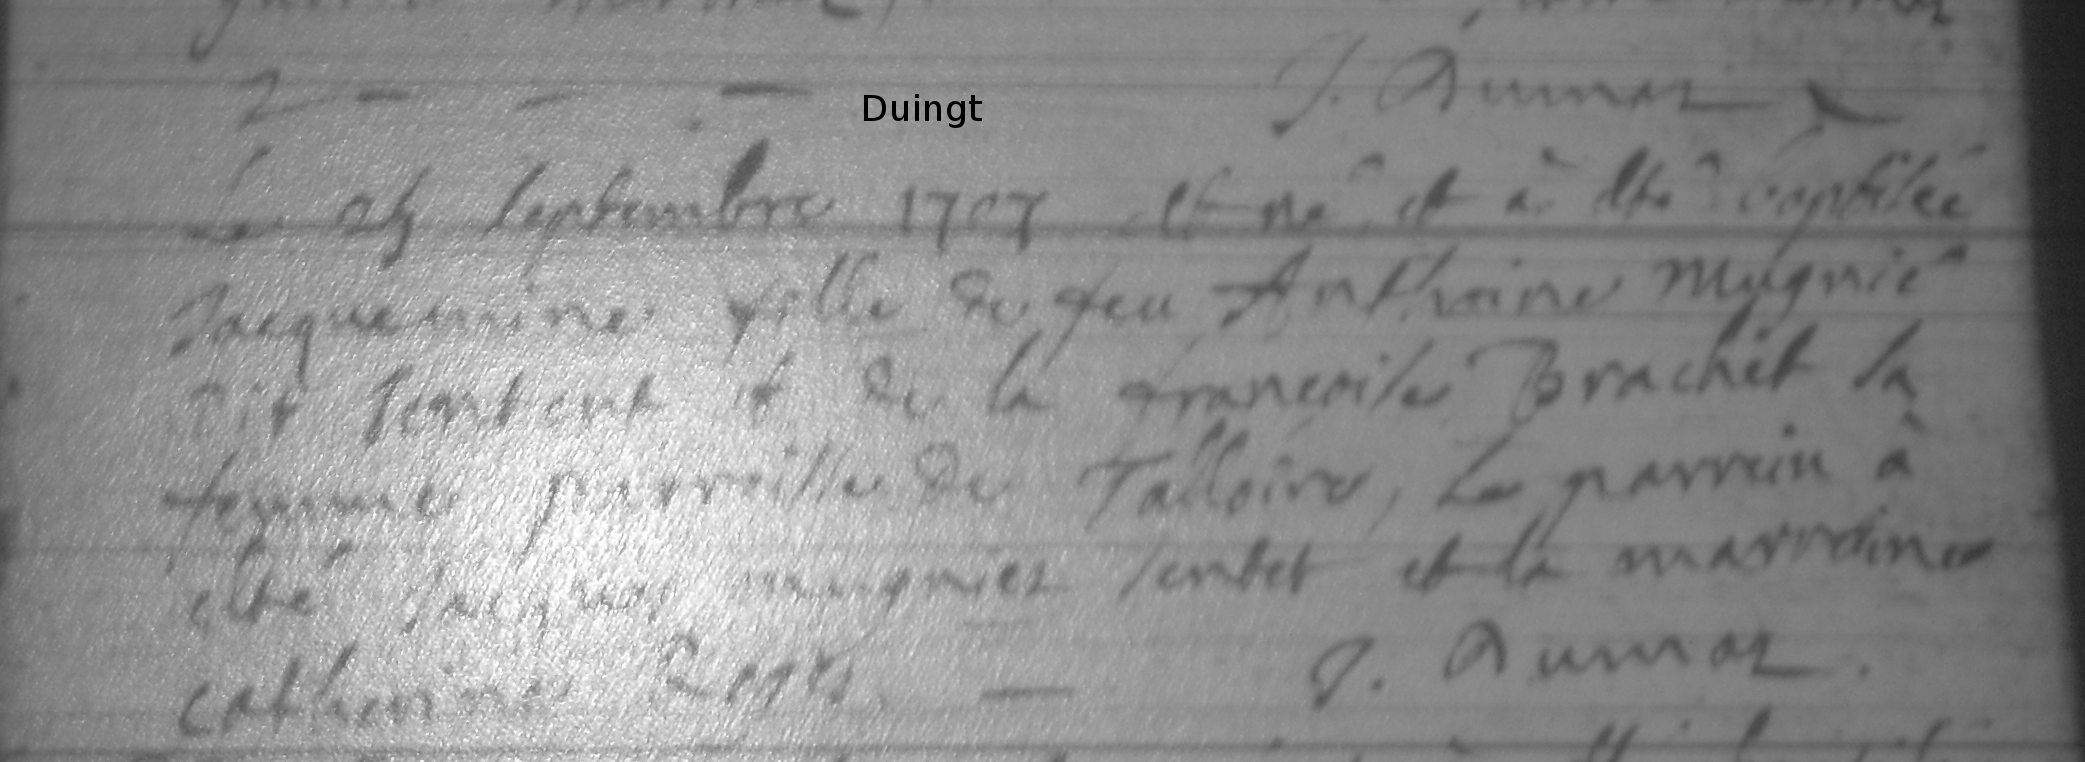 J. Dumaz
Duingt
Le 25 septembre 1707 est né et a esté baptisée
Jacquemine fille de feu Anthoine Mugnié
dit sentent et de la francoise Brachet sa
femme parroisse de Talloire, Le parrein à
esté Jacques mugniez sentet et la marraine
catherine J. Dumaz.